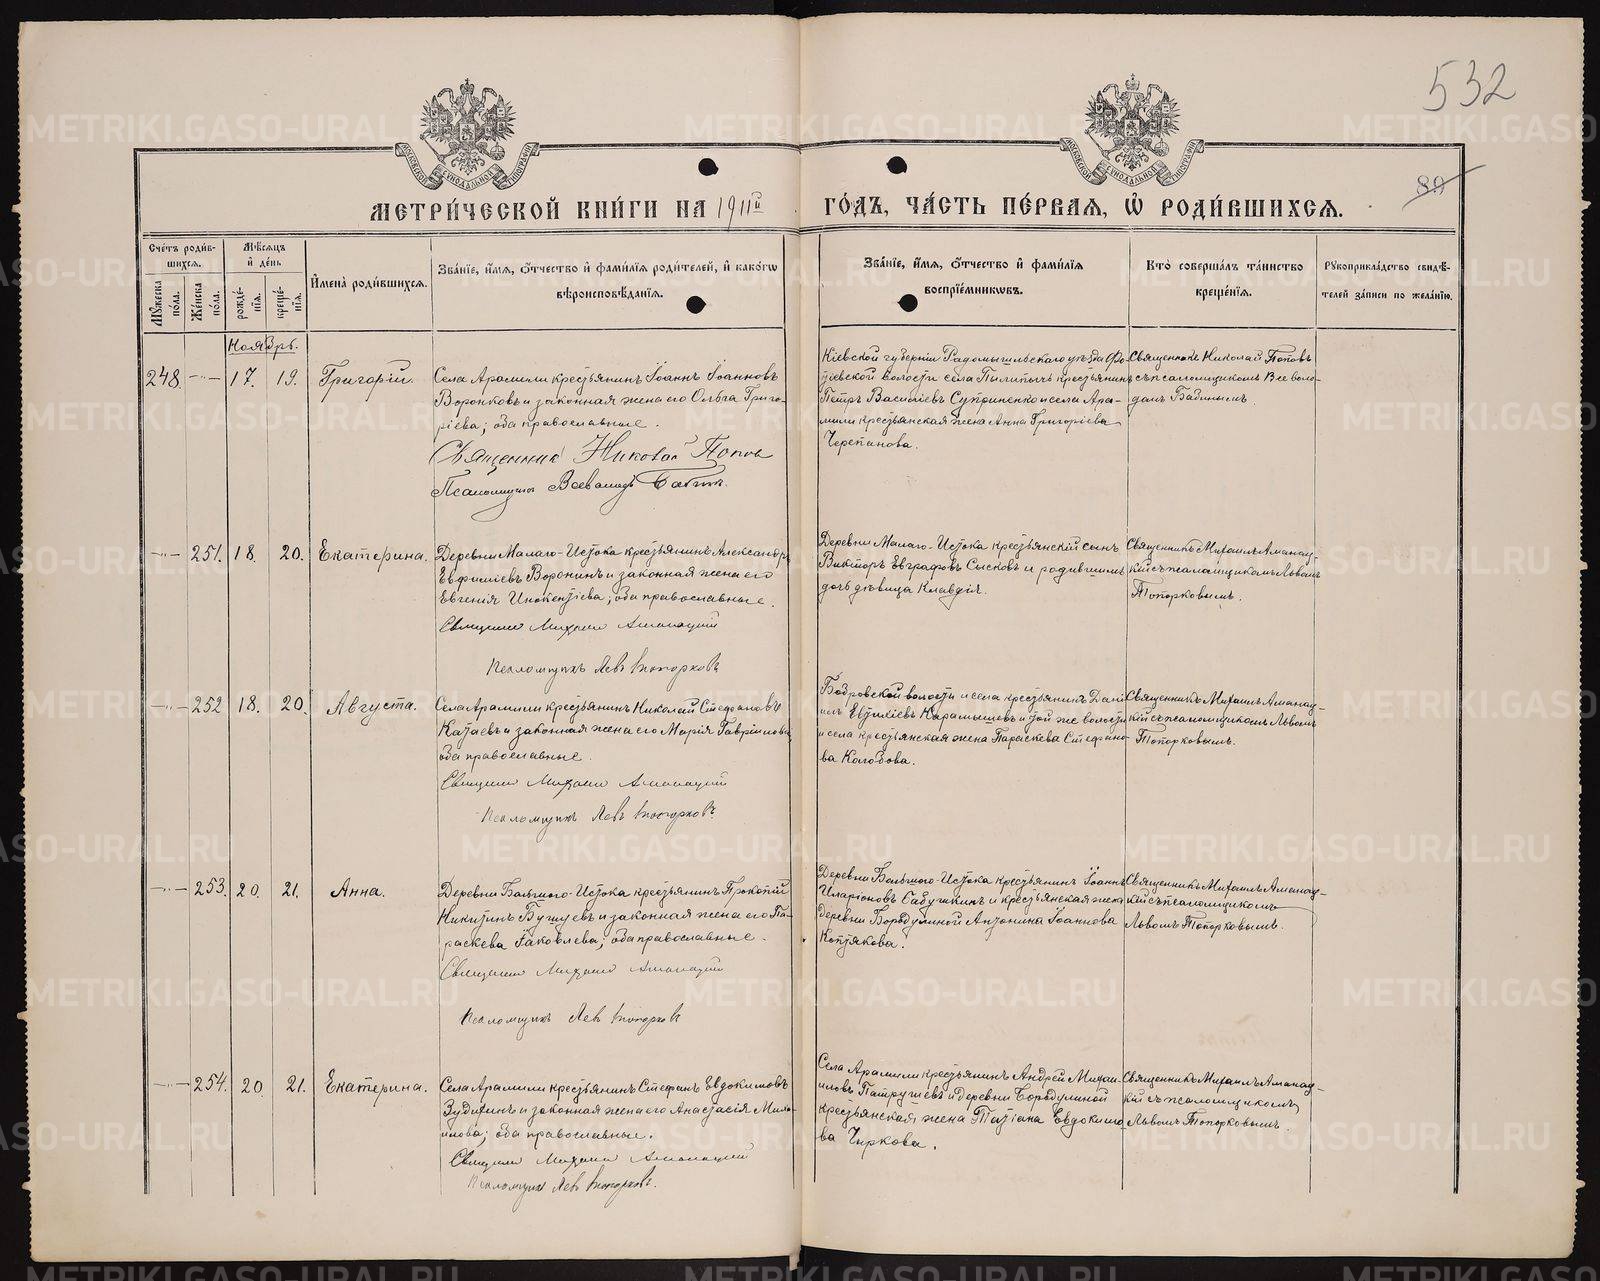 532
89
МЕТРИ́ЧЕСКОЙ КНИ́ГИ НА 1911й ГО́ДЪ, ЧА́СТЬ ПЕ́РВАЯ, Ѡ РОДИ́ВШИХСЯ.
Сче́тъ роди́в-
шихся.
Мꙋ́жеска по́ла.
Же́нска по́ла.
Мѣ́сяцъ и де́нь
рожде́-
нїя.
креще́-
нїя.
Имена̀ роди́вшихся.
Зва́нїе, и́мя, о́тчество и фами́лїя роди́телей, и како́гѡ
вѣроисповѣ́данїя.
Зва́нїе, и́мя, о́тчество и фами́лїя
воспрїе́мникѡвъ.
Кто̀ соверша́лъ та́инство
креще́нїя.
Рꙋкоприкла́дство свидѣ́-
телей за́писи по жела́нїю.
Ноябрь.
248. —"— 17. 19. Григорій.
Села Арамили крестьянинъ Іоаннъ Іоанновъ
Воронковъ и законная жена его Ольга Григо-
ріева; оба православные.
Священникъ Николай Попов
Псаломщикъ Всеволодъ
Кіевской губерніи Радомысльскаго уѣзда
волости села крестьянинъ
Петръ Василіевъ Суприненко и села Ара-
мили крестьянская жена Анна Григоріева
Черепанова.
Священникъ Николай Поповъ
съ псаломщикомъ Всеволо-
домъ
—"— 251. 18. 20. Екатерина.
Деревни Малаго-Истока крестьянинъ Александръ
Евфиміевъ Воронинъ и законная жена его
Евгенія Инокентіева; оба православные.
Священник Михаил Аманацкий
Псаломщикъ Левъ Топорковъ
Деревни Малаго-Истока крестьянскій сынъ
Викторъ Евграфовъ Сысковъ и родившимъ
дочь дѣвица Клавдія.
Священникъ Михаилъ Аманац-
кій съ псаломщикомъ Львомъ
Топорковымъ.
—"— 252 18. 20. Августа.
Села Арамили крестьянинъ Николай Стефановъ
Катаевъ и законная жена его Марія Гавріилова
оба православные.
Священник Михаил Аманацкий
Псаломщикъ Левъ Топорковъ
Бобровской волости и села крестьянинъ Дані-
илъ Евтихіевъ Карамышевъ и той же волости
и села крестьянская жена Параскева Стефано-
ва Колобова.
Священникъ Михаилъ Аманац-
кій съ псаломщикомъ Львомъ
Топорковымъ.
—"— 253. 20. 21. Анна.
Деревни Большого Истока крестьянинъ Прокопій
Никитинъ Бушуевъ и законная жена его Па-
раскева Іаковлева; оба православные.
Священник Михаил Аманацкий
Псаломщикъ Левъ Топорковъ
Деревни Большого Истока крестьянинъ Іоаннъ
Иларіоновъ Бабушкинъ и крестьянская жена
деревни Бородулиной Антонина Іоаннова
Коптякова.
Священникъ Михаилъ Аманац-
кій съ псаломщикомъ
Львомъ Топорковымъ.
—"— 254. 20. 21. Екатерина.
Села Арамили крестьянинъ Стефанъ Евдокимовъ
Зудихинъ и законная жена его Анастасія Миха-
илова; оба православные.
Священник Михаил Аманацкий
Псаломщикъ Левъ Топорковъ.
Села Арамили крестьянинъ Андрей Михаи-
иловъ Патрушевъ и деревни Бородулиной
крестьянская жена Татіана Евдокимо-
ва Чиркова.
Священникъ Михаилъ Аманац-
кій съ псаломщикомъ
Львомъ Топорковымъ.
METRIKI.GASO-URAL.RU